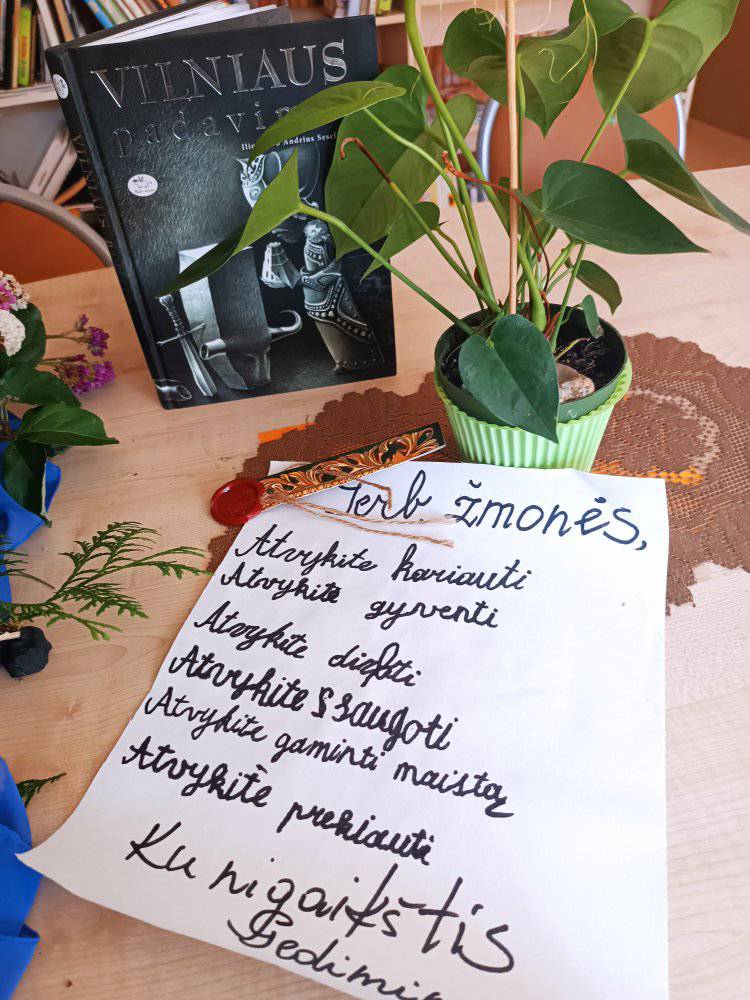 VILNIAUS
padavim
Andrius Sesel
Gerb žmonės,
Atvykite kariauti
Atvykite gyventi
Atvykite
Atvykite saugoti
Atvykite gaminti maistą
Atvykite prekiauti
Kunigaikštis
Gedimin